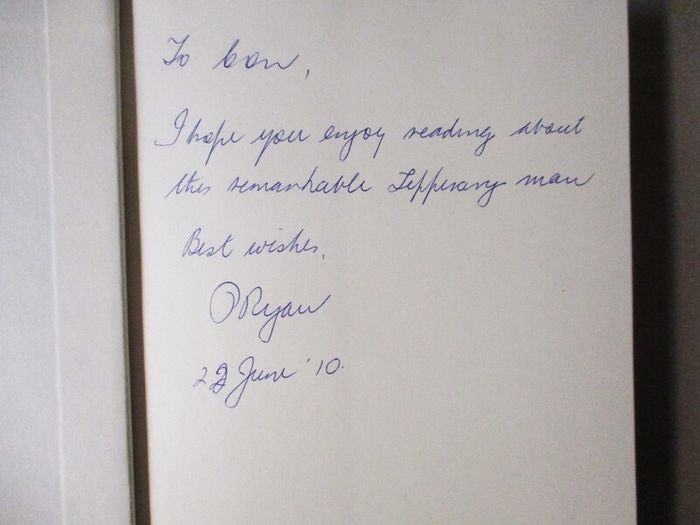 To Con,
I hope you enjoy reading about
this remarkable Tipperary man
Best wishes,
PRyan
22 June '10.